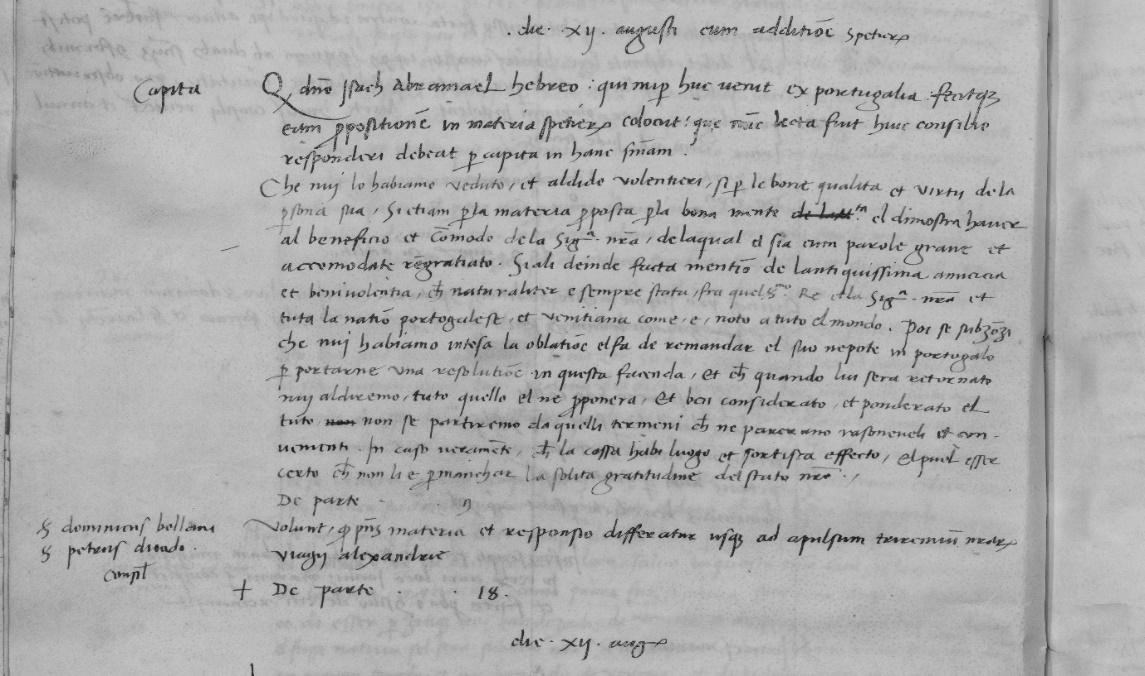 . die . xij . augusti cum additiõe spetierꝝ
Capita
Q dño Jsach Abramael hebreo : qui nup huc venit ex portugalia . fecitqʒ
eam ꝓpositionẽ in materia spetierꝝ colocut : que nũc lecta fuit huic consilio
responderi debeat ꝑ capita in hanc snĩam .
Che nuj lo habiamo veduto , et aldido volentieri , si ꝑ le bone qualita et virtu de la
ꝑsona sua , Si etiam ꝑ la materia ꝓposta ꝑ la bona mente el dimostra haver
al beneficio et cõmodo de la Sigᵃ nrã , de laqual el sia cum parole grave et
accomodate rẽgratiato . Siali deinde facta mentiõ de lantiquissima amicicia
et benivolentia , ch̃ naturaliter e sempre stata , fra quel Sᵐᵒ Re et la Sigᵃ nrã et
tuta la natiõ portogalese , et venitiana come , e , noto a tuto el mondo . Poi se subzõzi
che nuj habiamo intesa la oblatiõe el fa de remandar el suo nepote in portogalo
ꝑ portarne una resolutiõe in questa facenda , et ch̃ quando lui sera retornato
nuj aldiremo , tuto quello el ne ꝓponera , Et ben considerato , et ponderato el
tuto non se partiremo da quelli termeni ch̃ ne parerano rasoneveli et con-
venienti . In caso veramẽte , ch̃ la cossa habi luogo et sortisca effecto , el puol esser
certo ch̃ non li e ꝑ manchar la solita gratitudine del stato nrõ .
De parte . . 9
S dominicus bollani
S petrus duodo .
Consil
Volunt , ꝙ pñs materia et responsio differatur usqʒ ad apulsum triremiũ nrarꝝ
viagij alexandrie
+ De parte . . 18 .
die . xij . aug